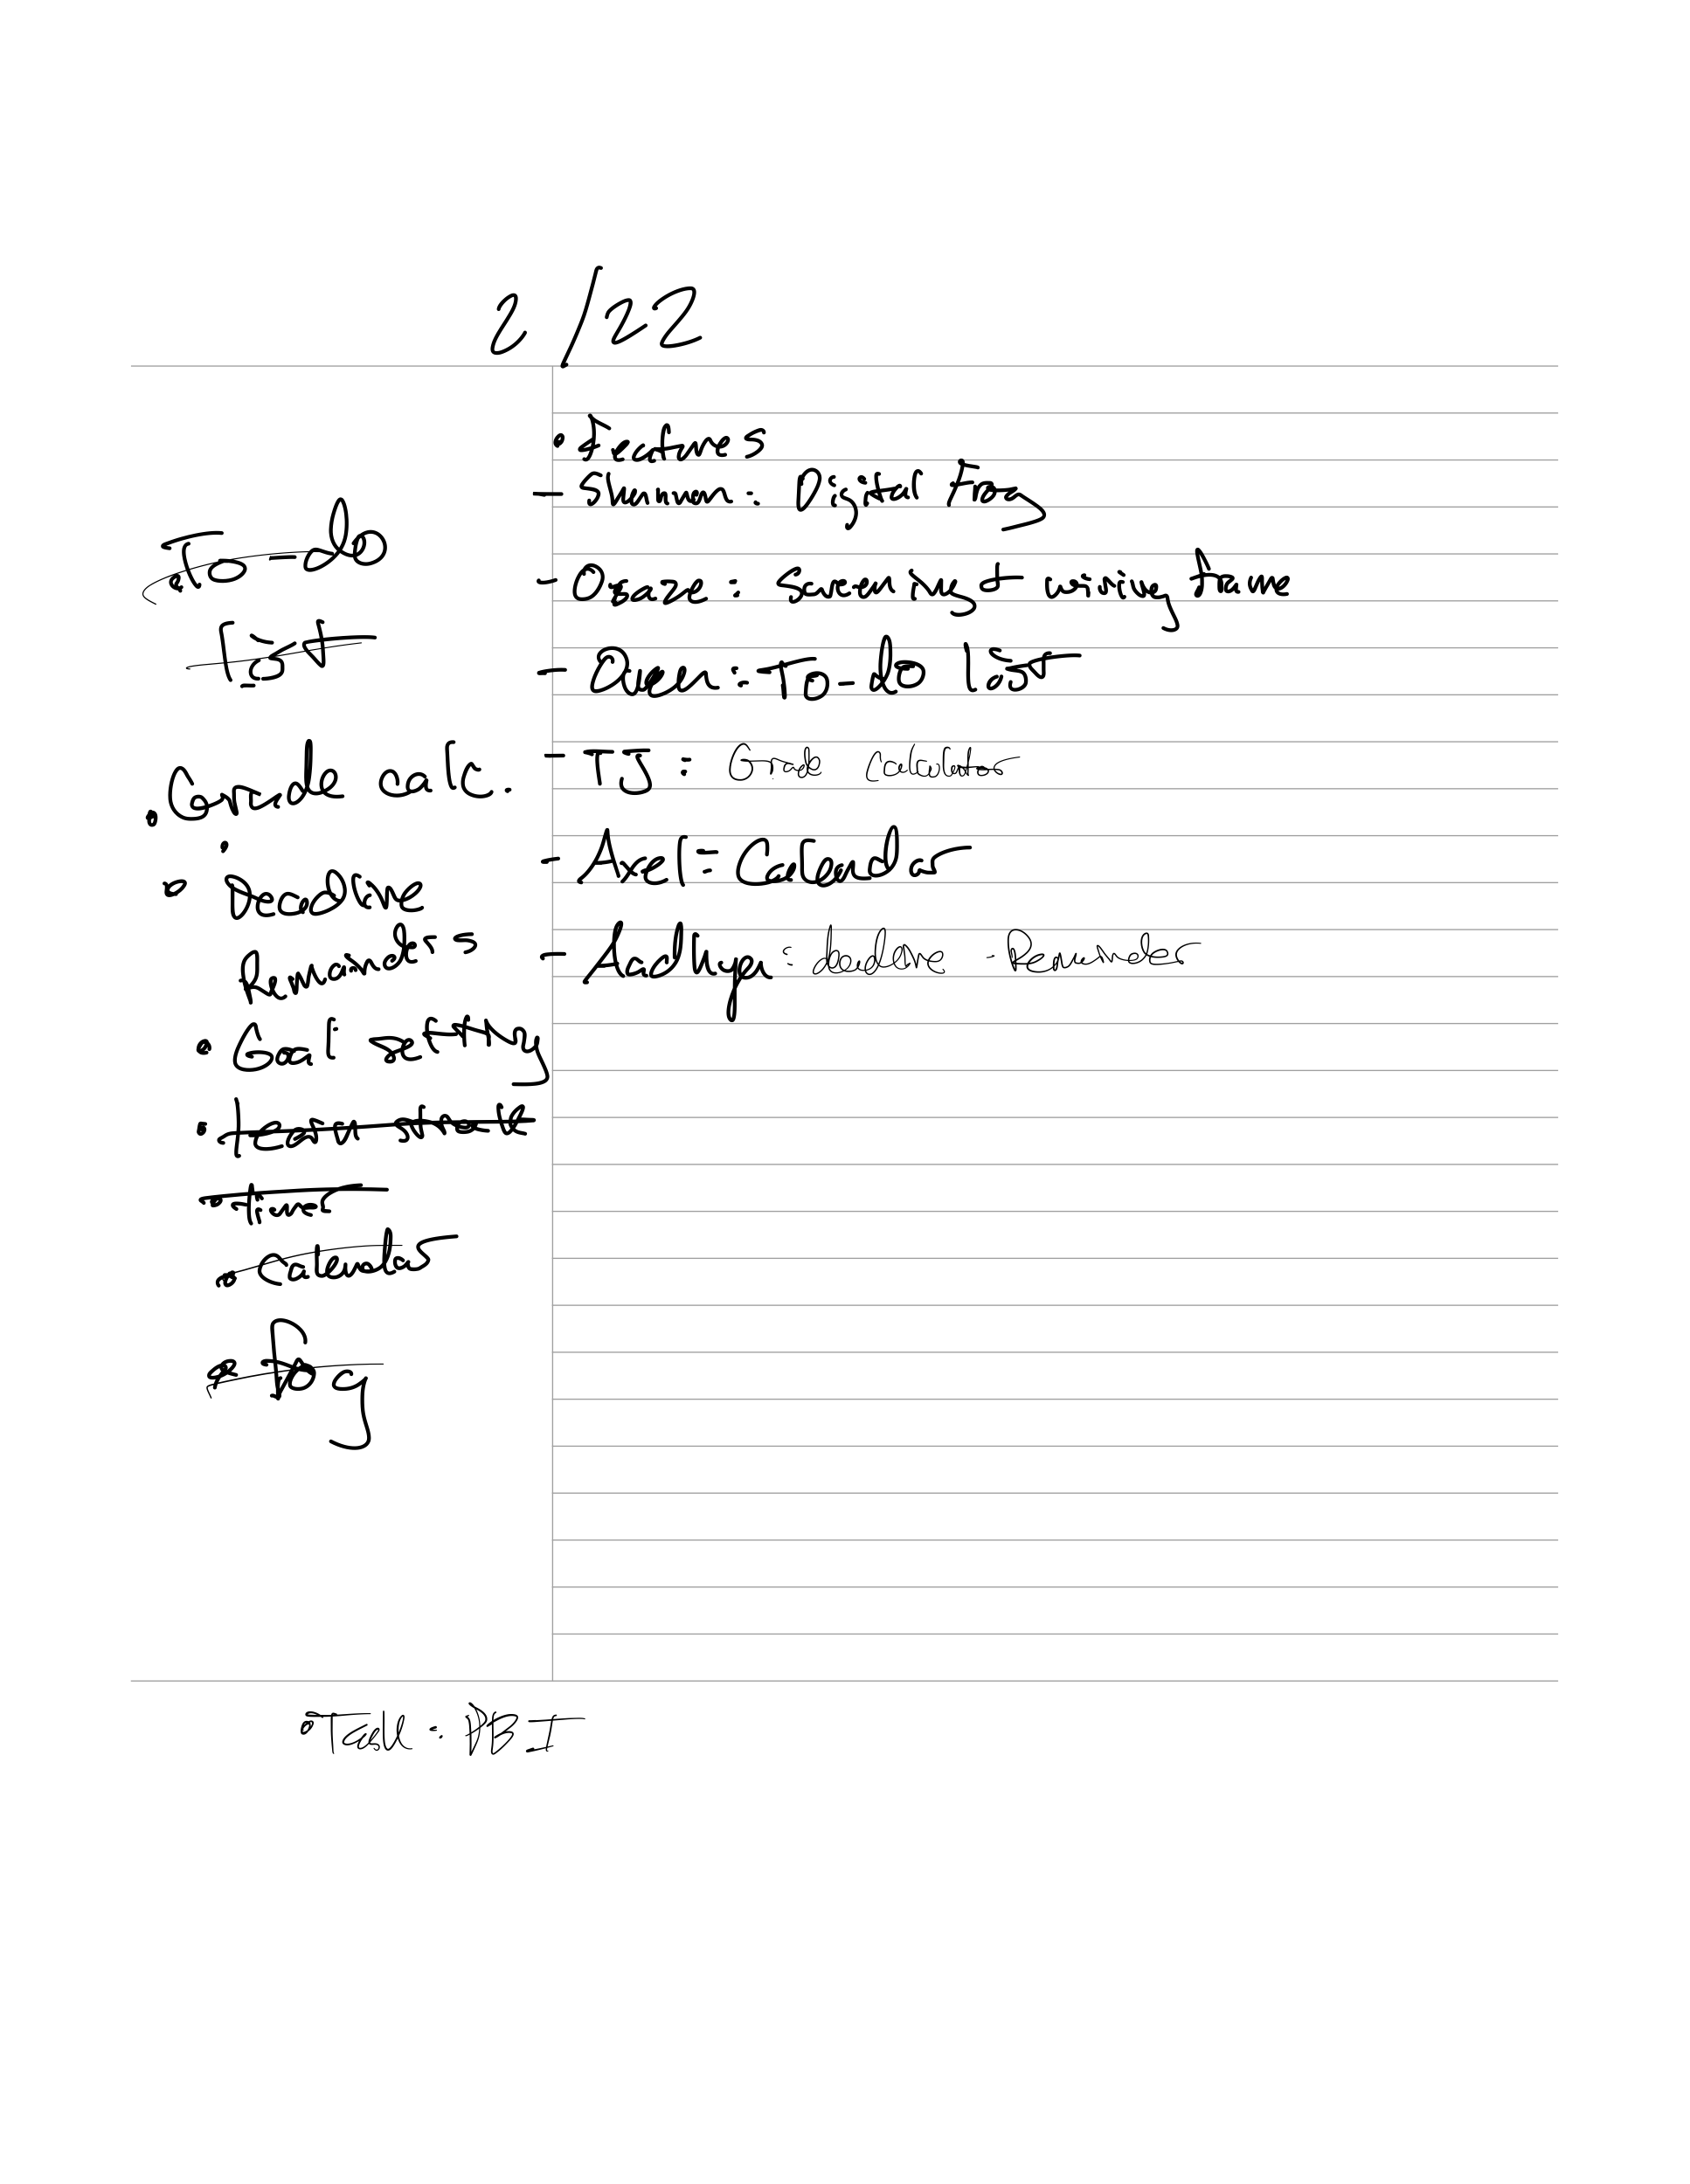 2/22
To-do
list
• Grade calc.
• Deadline
Remainders
• Goal setting
• team streak
• timer
• Calendar
• Frog
• Features
- Shannon: Digital Frog
- Osaze: Screening + wiring frame
- Owen: To-do list
- TJ: Grade Calculator
- Axel: Calendar
- Aadhya: deadline - Reminder
• Task: PBI